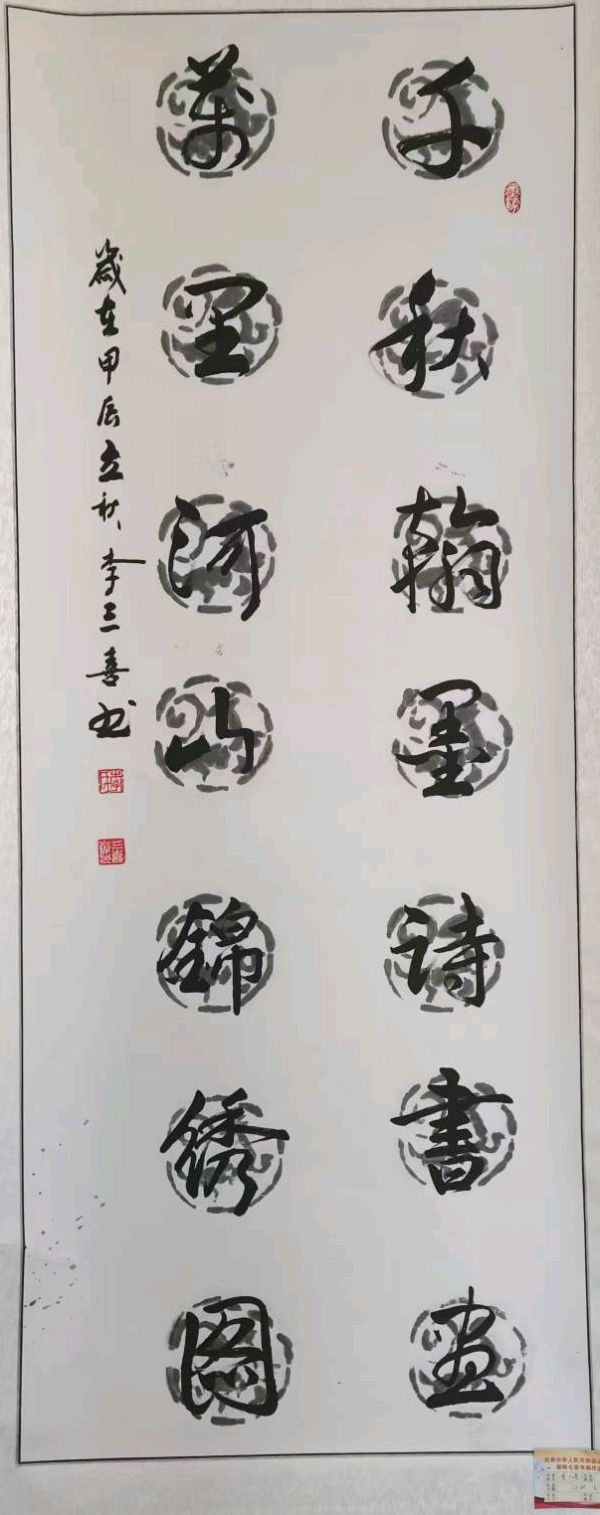 千秋翰墨诗書画
萬里河山錦绣图
歲在甲辰立秋李三喜书